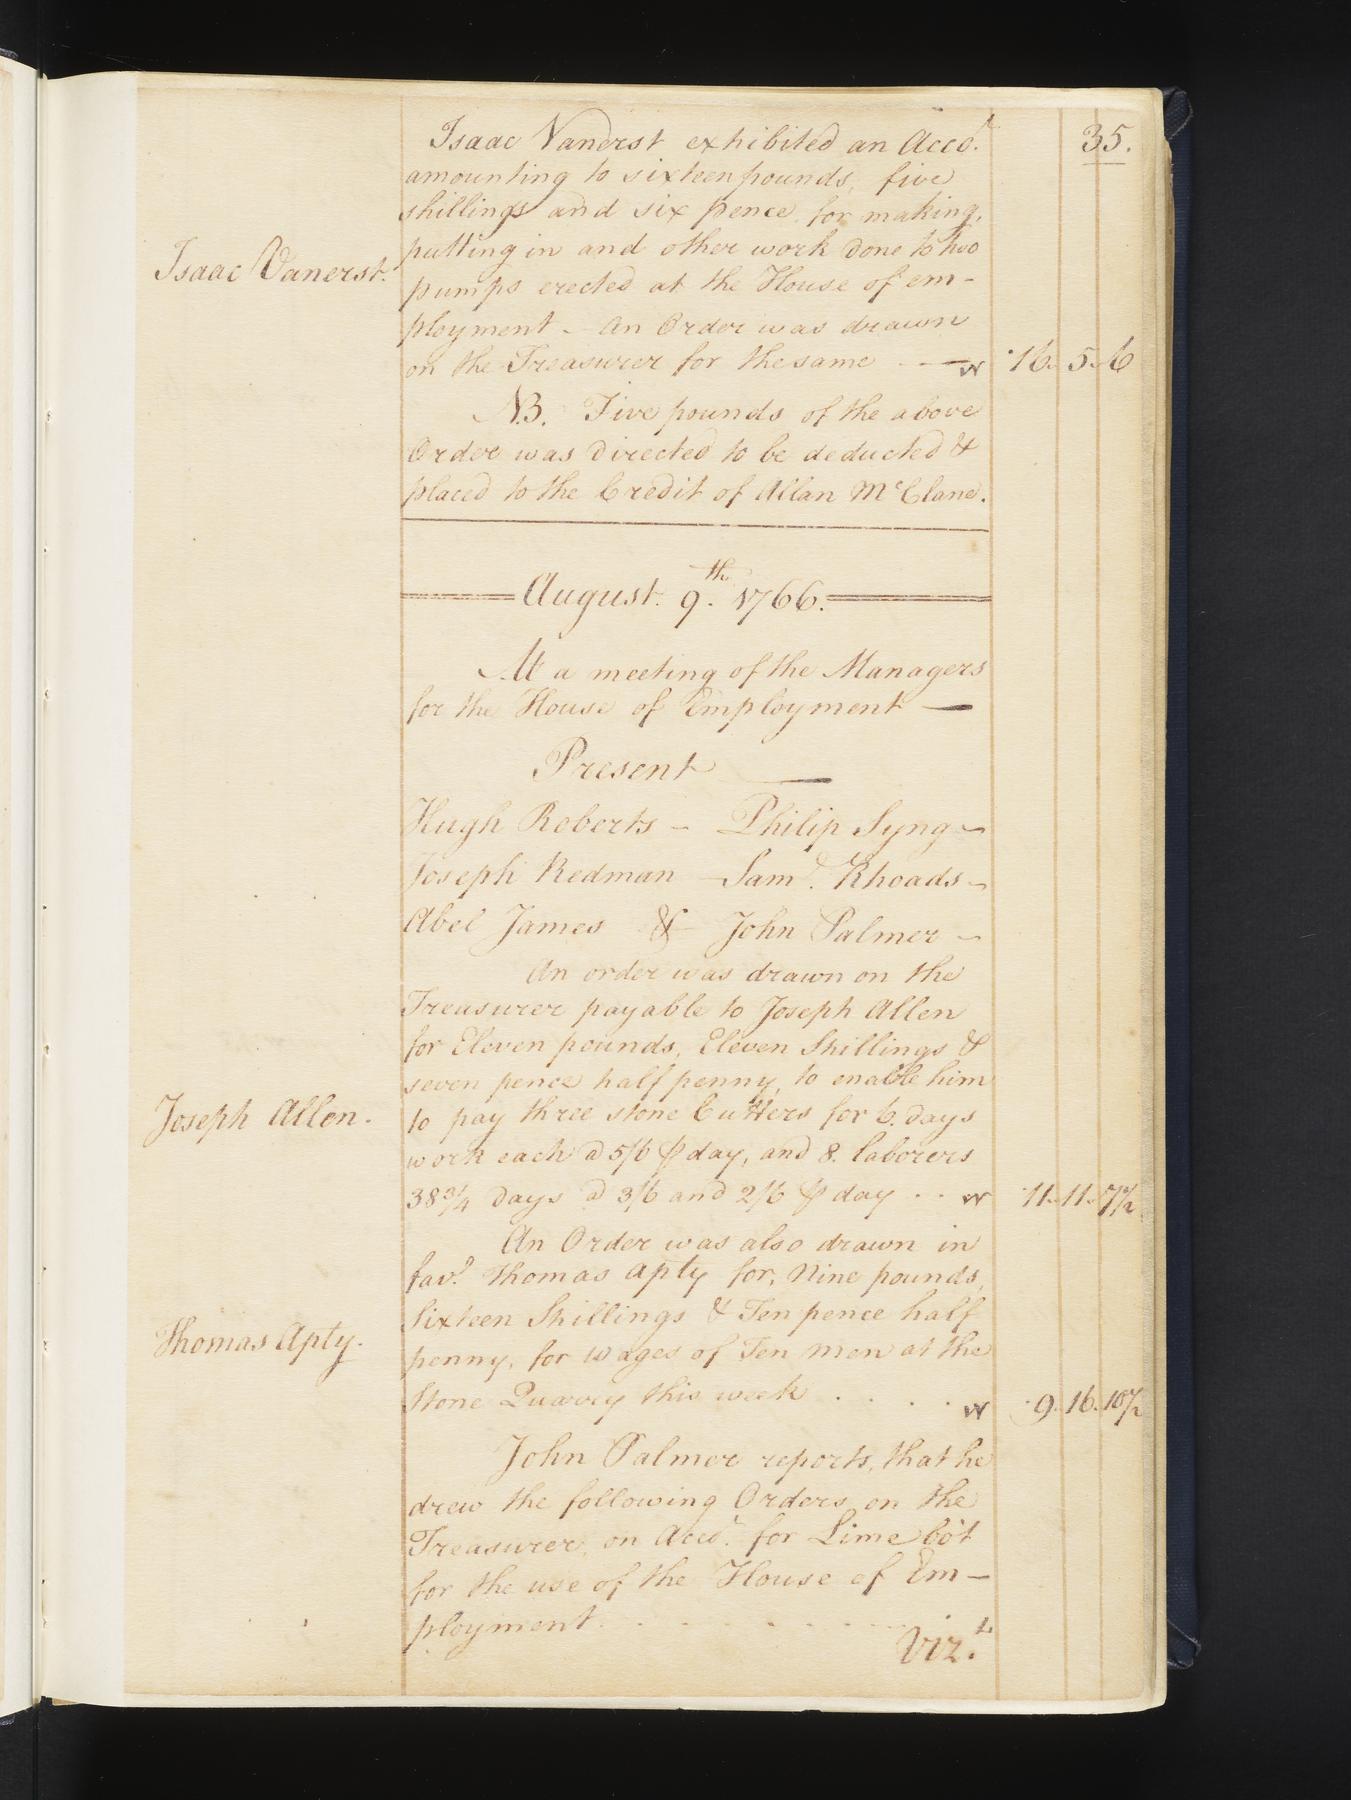 35.
Isaac Vanerst exhibited an Acco.t
amounting to sixteen pounds, five
shillings and six pence for making,
putting in and other work done to two
Isaac Vanerst.
pumps erected at the House of em-
ployment - An Order was drawn
on the Treasurer for the same - 16. 5. 6
NB. Five pounds of the above
Order was directed to be deducted &
placed to the Credit of Allan McClane.
August. 9.th 1766.
At a meeting of the Managers
for the House of Employment —
Present —
Hugh Roberts - Philip Syng -
Joseph Redman - Sam.l Rhoads -
Abel James & John Palmer -
An order was drawn on the
Treasurer payable to Joseph Allen
for Eleven pounds, Eleven Shillings &
seven pence half penny, to enable him
Joseph Allen.
to pay three stone Cutters for 6. days
work each a 5/6 ⅌ day, and 8. laborers
38 3/4 days a 3/6 and 2/6 ⅌ day . . 11. 11. 7 1/2
An Order was also drawn in
fav.r Thomas Apty for, Nine pounds,
Sixteen Shillings & Ten pence half
Thomas Apty.
penny, for wages of Ten men at the
Stone Quarry this week . . . . 9. 16. 10 1/2
John Palmer reports, that he
drew the following Orders on the
Treasurer, on Acco.t for Lime bo't
for the use of the House of Em-
ployment. . . . . .
Viz.t